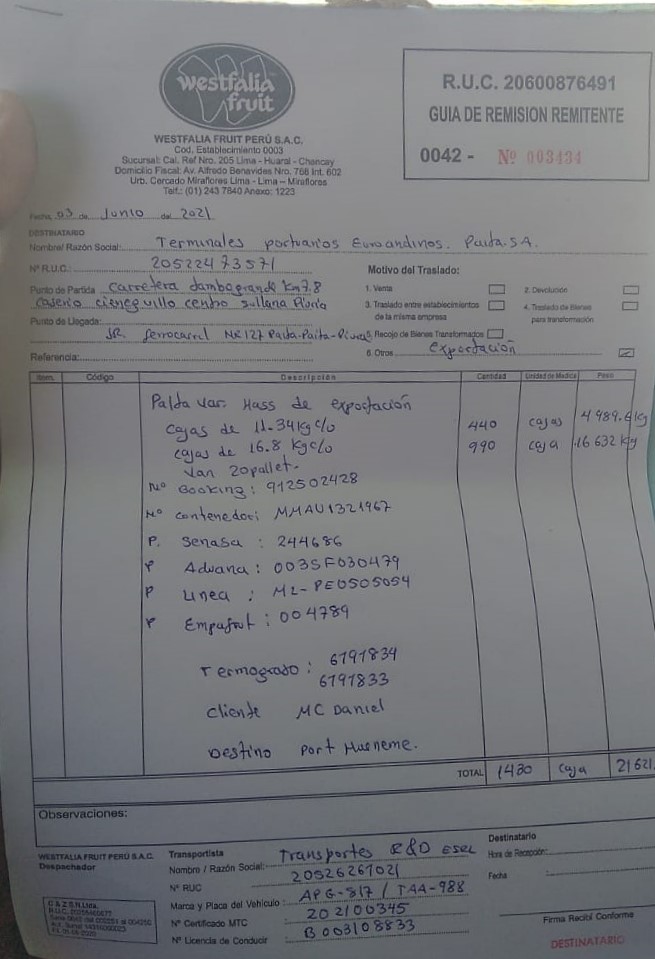 westfalia
fruit
WESTFALIA FRUIT PERÚ S.A.C.
Cod. Establecimiento 0003
Sucursal: Cal. Ref Nro. 205 Lima - Huaral - Chancay
Domicilio Fiscal: Av. Alfredo Benavides Nro. 768 Int. 602
Urb. Cercado Miraflores Lima - Lima - Miraflores
Telf.: (01) 243 7840 Anexo: 1223
R.U.C. 20600876491
GUIA DE REMISION REMITENTE
0042 - Nº 003434
Fecha, 03 de Junio del 2021
DESTINATARIO
Nombre/ Razón Social: Terminales portuarios Euroandinos. Paita. S.A.
Nº R.U.C: 20522473571
Punto de Partida Carretera tambogrande Km 7.8
Caserio cieneguillo centro Sullana Piura
Punto de Llegada:
JR. ferrocarril NR 127 Paita-Paita-Piura
Referencia:
Motivo del Traslado:
1. Venta
2. Devolución
3. Traslado entre establecimientos de la misma empresa
4. Traslado de Bienes para transformación
5. Recojo de Bienes Transformados
6. Otros Exportación
Item. Código Descripción Cantidad Unidad de Medica Peso
Palta var. Hass de exportación
cajas de 11.34 kg c/o 440 cajas 4 989.6 kg
cajas de 16.8 kg c/o 990 caja 16 632 kg
Van 20 pallet.
Nº Booking: 912502428
Nº contenedor: MMAU1321967
P. Senasa : 244686
P Aduana : 003SF030479
P Linea : ML-PE0505054
P Empafrut : 004789
Termógrafo : 6797834
6797833
Cliente MC Daniel
Destino Port Hueneme.
TOTAL 1430 Caja 21621.
Observaciones:
WESTFALIA FRUIT PERÚ S.A.C.
Despachador
Transportista
Nombre / Razón Social: Transportes R&D ESRL
Nº RUC 20526267021
Marca y Placa del Vehículo : APG-817 / TAA-988
Nº Certificado MTC 202100345
Nº Licencia de Conducir B003108833
Destinatario
Hora de Recepción:
Fecha :
Firma Recibí Conforme
DESTINATARIO